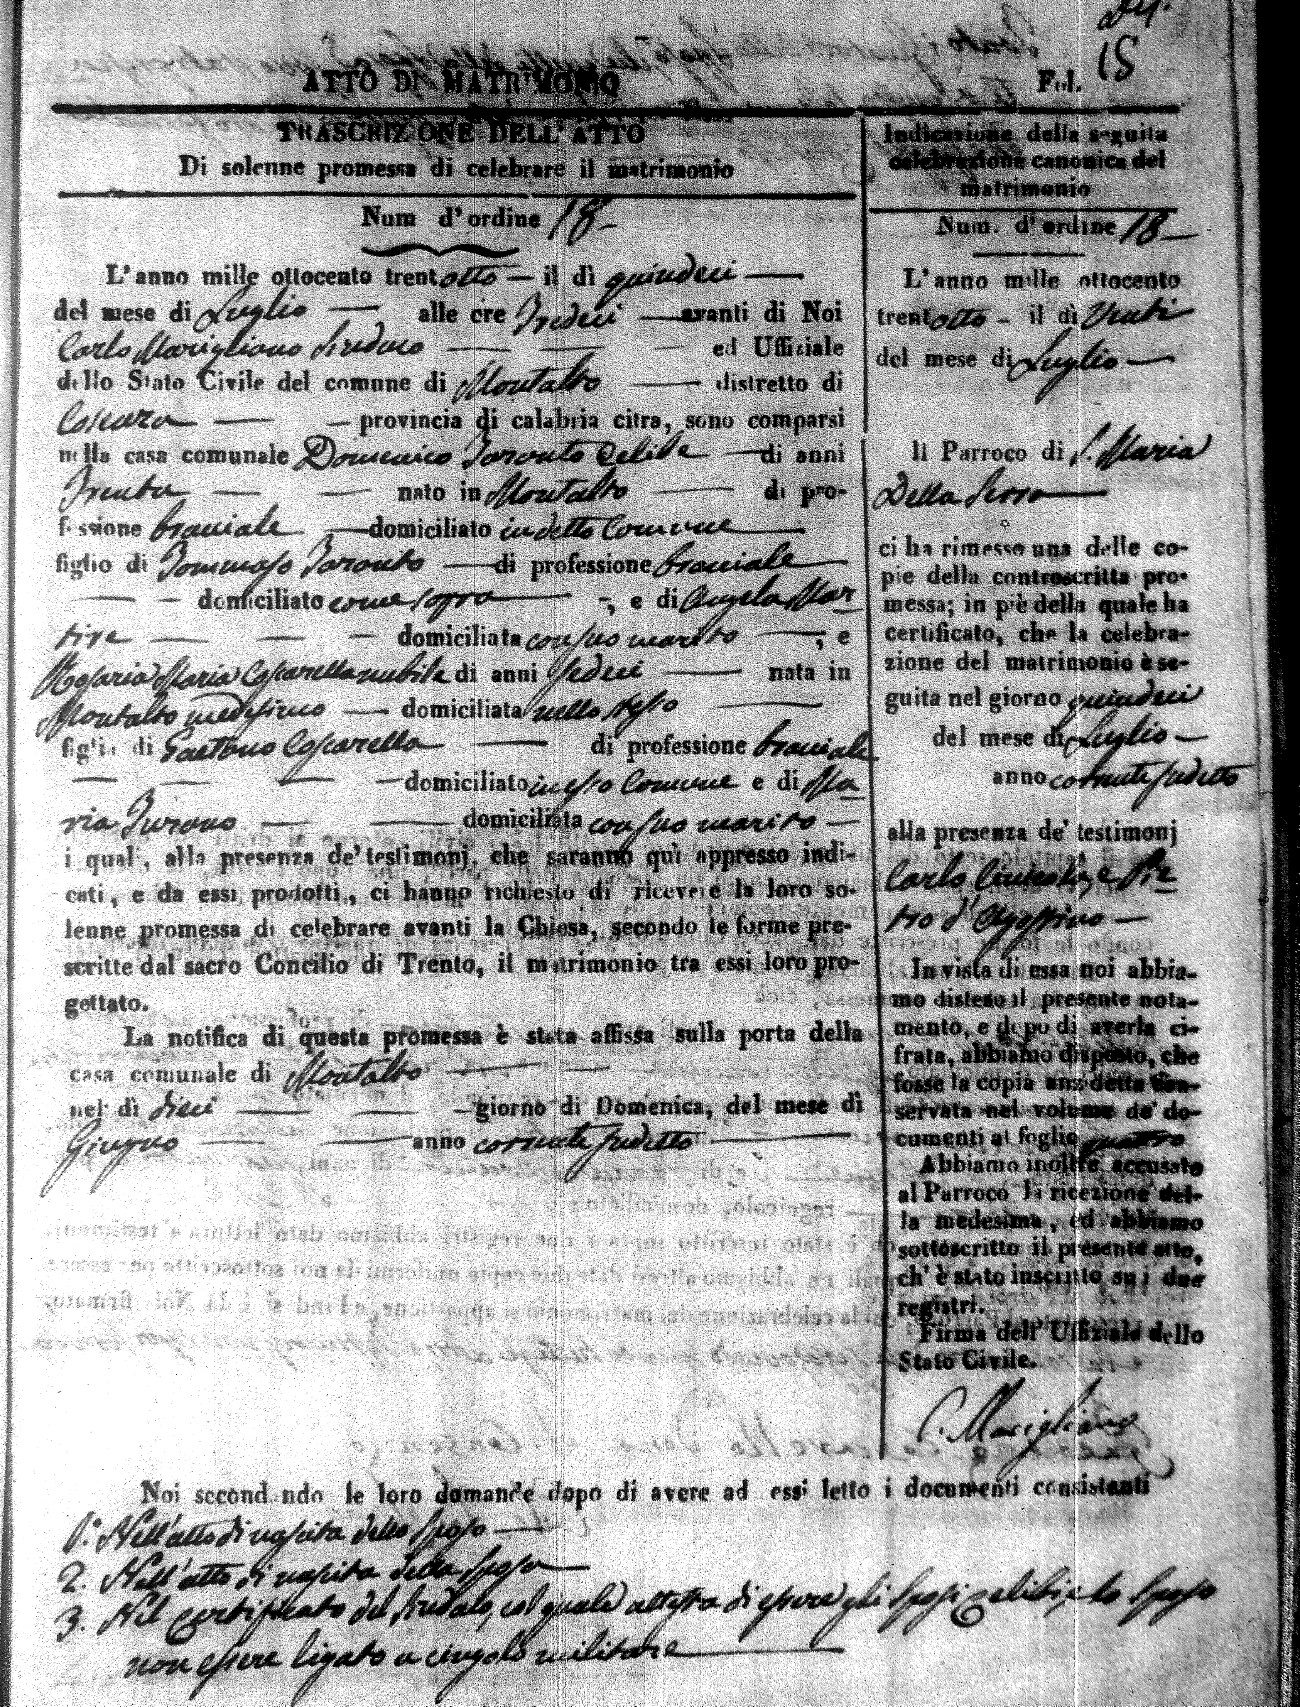 24.
ATTO DI MATRIMONIO
Fol. 15
TRASCRIZIONE DELL' ATTO
Di solenne promessa di celebrare il matrimonio
Num d' ordine 18
L' anno mille ottocento trentotto il dì quindeci
del mese di Luglio alle ore Tredeci avanti di Noi
Carlo Marigliano Sindaco ed Uffiziale
dello Stato Civile del comune di Montalto distretto di
Cosenza provincia di calabria citra, sono comparsi
nella casa comunale Domenico Toronto Celibe di anni
Trenta nato in Montalto di pro-
fessione bracciale domiciliato in detto Comune
figlio di Tommaso Toronto di professione bracciale
domiciliato come sopra , e di Angela Mar
tire domiciliata con suo marito , e
Rosaria Maria Caparella nubile di anni Sedeci nata in
Montalto medesimo domiciliata nello stesso
figlia di Gaetano Caparella di professione bracciale
domiciliato in esso Comune e di Ma
ria Turano domiciliata con suo marito
i quali, alla presenza de' testimonj, che saranno quì appresso indi-
cati, e da essi prodotti, ci hanno richiesto di ricevere la loro so-
lenne promessa di celebrare avanti la Chiesa, secondo le forme pre-
scritte dal sacro Concilio di Trento, il matrimonio tra essi loro pro-
gettato.
La notifica di questa promessa è stata affissa sulla porta della
casa comunale di Montalto
nel dì dieci giorno di Domenica, del mese di
Giugno anno corrente sudetto
Indicazione della seguita
celebrazione canonica del
matrimonio
Num. d' ordine 18
L' anno mille ottocento
trentotto il dì Venti
del mese di Luglio
Il Parroco di S. Maria
Della Serra
ci ha rimesso una delle co-
pie della controscritta pro-
messa; in piè della quale ha
certificato, che la celebra-
zione del matrimonio è se-
guita nel giorno quindeci
del mese di Luglio
anno corrente sudetto
alla presenza de' testimonj
Carlo e Pie
tro d'
In vista di essa noi abbia-
mo disteso il presente nota-
mento, e dopo di averla ci-
frata, abbiamo disposto, che
fosse la copia anzidetta con-
servata nel volume de' do-
cumenti al foglio quattro
Abbiamo inoltre accusato
al Parroco la ricezione del-
la medesima, ed abbiamo
sottoscritto il presente atto,
ch' è stato inscritto su i due
registri.
Firma dell' Uffiziale dello
Stato Civile.
C. Marigliano
Noi secondando le loro domande dopo di avere ad essi letto i documenti consistenti
1.° Nell'atto di nascita dello sposo
2. Nell'atto di nascita della sposa
3. Nel certificato del Sindaco, col quale attesta di essere gli sposi celibi, e lo sposo
non essere ligato a cingolo militare